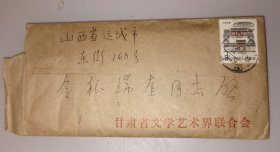 山西省运城市
东街168号
金征瑞查同志启
甘肃省文学艺术界联合会